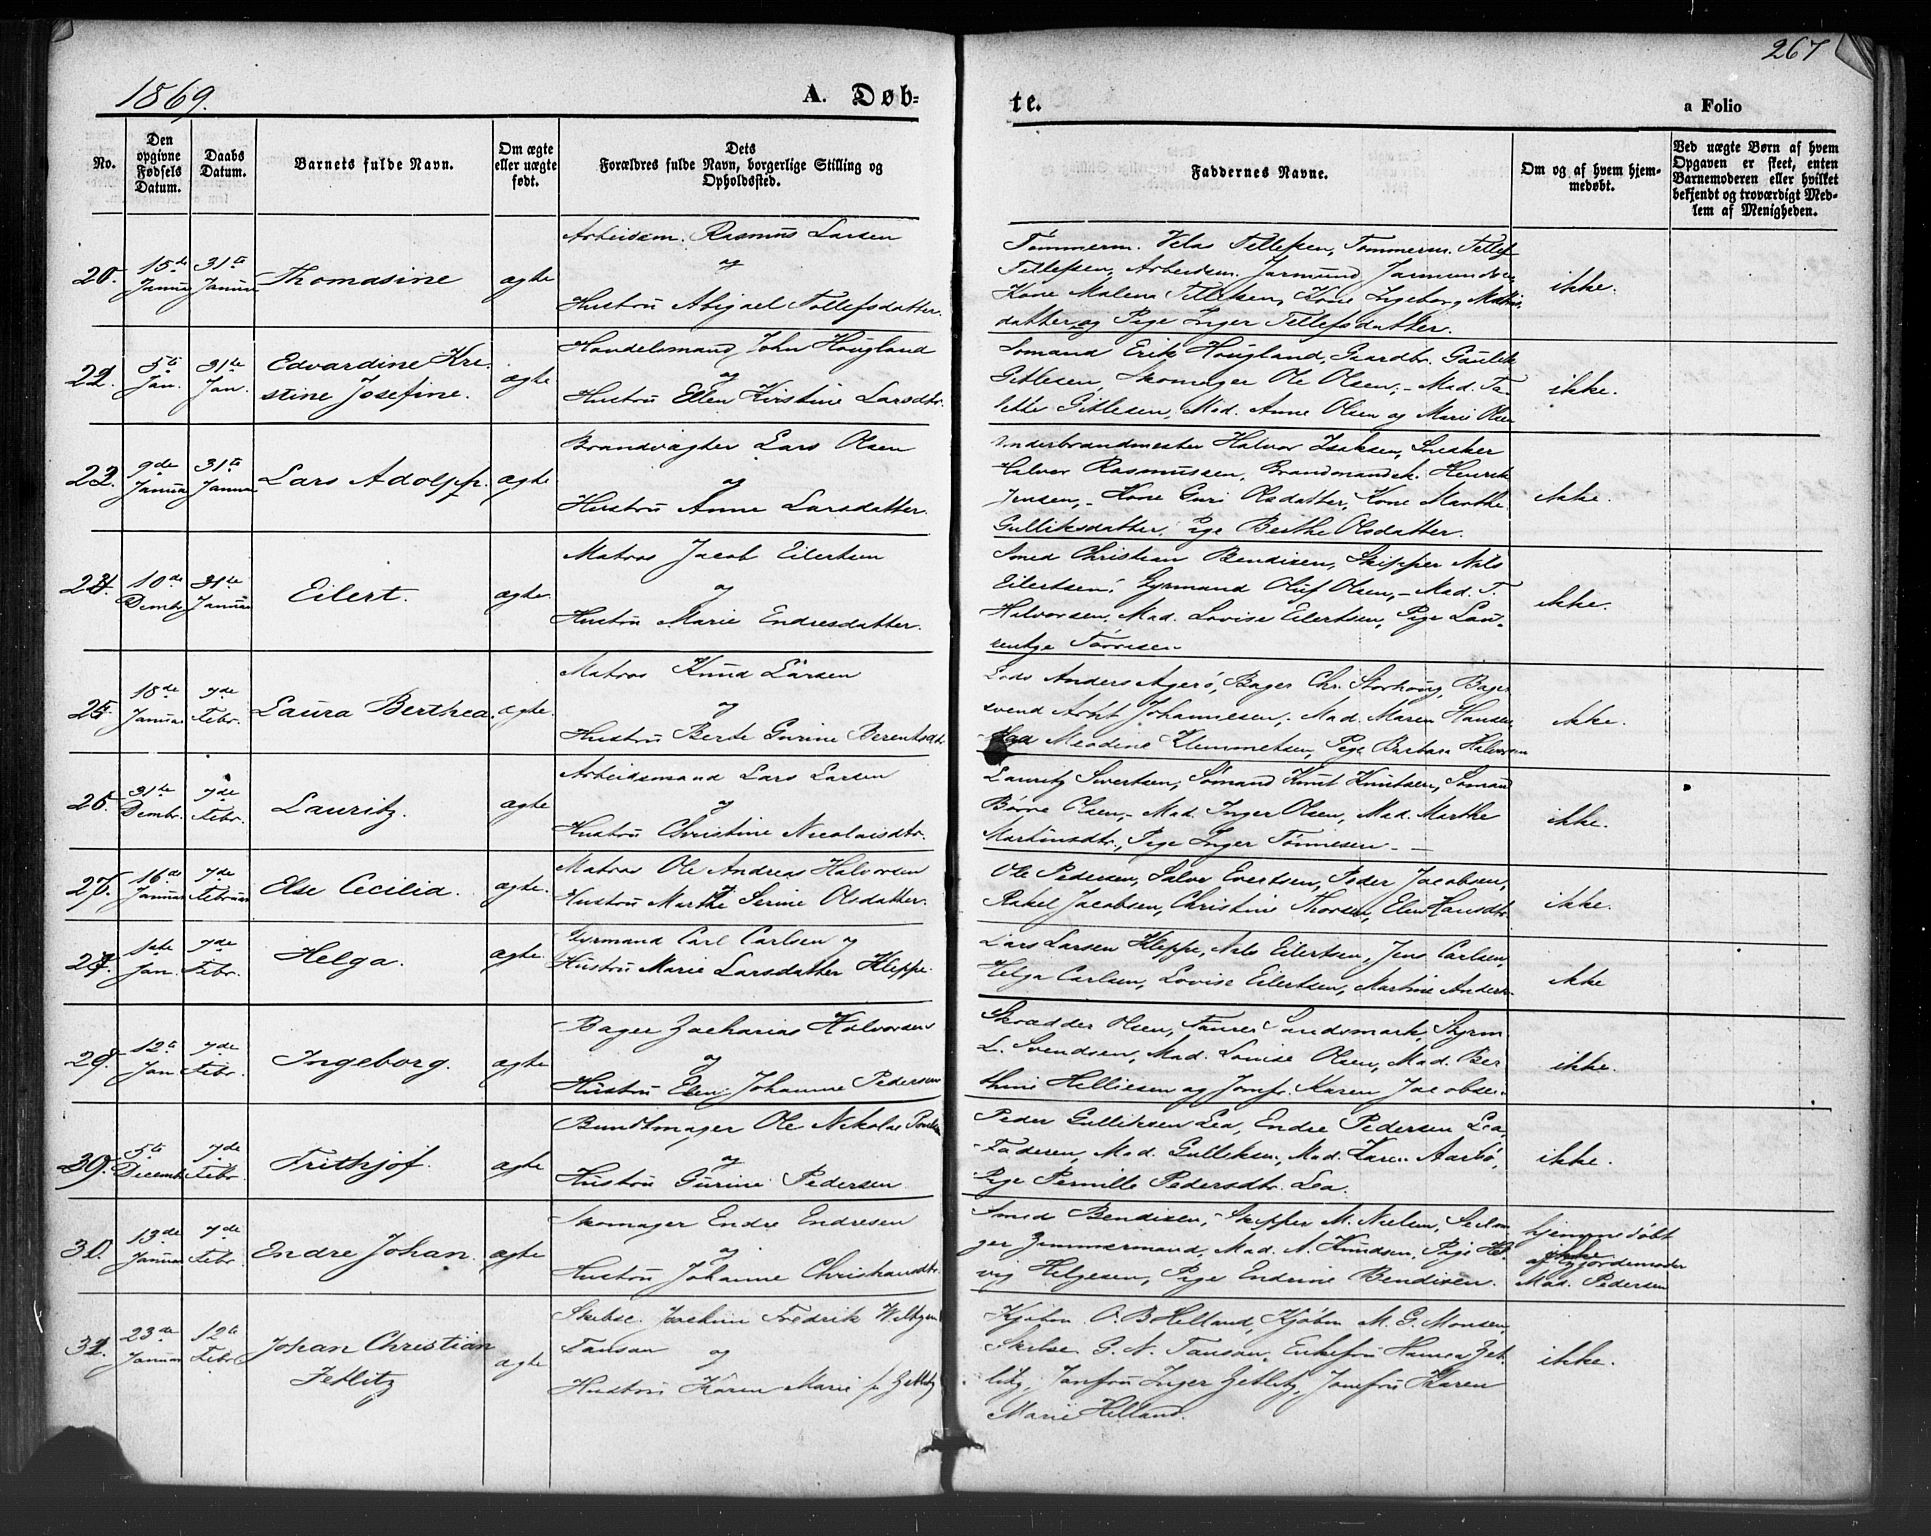 1869.
A. Døb=
te.
267
a Folio
No.
Den opgivne Fødsels Datum.
Daabs Datum.
Barnets fulde Navn.
Om ægte eller uægte født.
Dets Forældres fulde Navn, borgerlige Stilling og Opholdssted.
Faddernes Navne.
Om og af hvem hjem-
medøbt.
Ved uægte Børn af hvem
Opgaven er skeet, enten
Barnemoderen eller hvilket
bekjendt og troværdigt Med-
lem af Menigheden.
20. 15de Januar 31te Januar Thomasine ægte
Arbeidsm. Rasmus Larsen
og
Hustru Abigael Tollefsdatter.
Tømmerm. Velas Tellefsen, Tømmerm. Tellef
Tellefsen, Arbeidsm. Jarmund
Kone Malena Tellefsen, Kone Ingeborg
datter og Pige Inger Tellefsdatter.
ikke.
22. 5te Jan. 31te Jan. Edvardine Kri-
stine Josefine. ægte
Handelsmand John Hougland
og
Hustru Ellen Kristine Larsdtr.
Sømand Erik Hougland, Gaardbr. Gaulik
Gitlesen, Skomager Ole Olsen, - Mad. Ta-
lette Gitlesen, Mad. Anne Olsen og Marie Olsen
ikke.
22. 9de Januar 31te Januar Lars Adolph. ægte
Brandvægter Lars Olsen
og
Hustru Anne Larsdatter.
Underbrandmester Halvor Isaksen, Snedker
Halvor Rasmussen, Brandmandsk. Henrik
Jensen, - Kone Guri Olsdatter, Kone Marthe
Gulliksdatter, Pige Berthe Olsdatter.
ikke.
10de Decembr 31te Januar Eilert. ægte
Matros Jacob Eilertsen
og
Hustru Marie Endresdatter.
Smed Christian Bendixen, Skipper Nils
Eilertsen, Styrmand Oluf Olsen, - Mad. T.
Halvorsen, Mad. Lovise Eilertsen, Pige Lau-
rentze Tørresen
ikke.
25. 18de Januar 7de Febr. Laura Berthea. ægte.
Matros Knud Larsen
og
Hustru Berte Gurine Berentsdtr
Lods Anders Agerø, Bager Chr. Storhoug, Bager
svend Arnt Johannesen, Mad. Maren Hansen
Mad Klemmetsen, Pige Barbara Halvorsen
ikke.
25. 31te Decembr. 7de Febr. Lauritz. ægte
Arbeidsmand Lars Larsen
og
Hustru Christine Nicolaisdtr.
Lauritz Sivertsen, Sømand Knut Knutsen, Sømand
Børre Olsen, - Mad. Inger Olsen, Mad. Marthe
Martinsdtr., Pige Inger Tønnesen -
ikke.
16de Januar 7de Februar Else Cecilia. ægte.
Matros Ole Andreas Halvorsen
Hustru Marthe Serine Olsdatter.
Ole Pedersen, Salve Evertsen, Peder Jacobsen,
Rakel Jacobsen, Christine Thorsen, Elen Hansdtr.
ikke.
1ste Jan. 7de Febr. Helga. ægte.
Styrmand Carl Carlsen og
Hustru Marie Larsdatter Kleppe.
Lars Larsen Kleppe, Nils Eilertsen, Jens Carlsen,
Helga Carlsen, Lovise Eilertsen, Martine Anders
ikke
29. 12te Jan 7de Febr. Ingeborg. ægte
Bager Zacharias Halvorsen
og
Hustru Elen Johanne Pedersen
Skrædder Olsen, Sandsmark, Styrm
L. Svendsen, Mad. Louise Olsen, Mad. Ber
thine Helliesen og Jomfr. Karen Jacobsen
ikke.
5te Decembr 7de Febr. Frithjof. ægte
Bundtmager Ole Nikolai
og
Hustru Gurine Pedersen
Peder Gulliksen Lea, Endre Pedersen Lea,
Fadesen, Mad. Gulliksen, Mad. Karen Aarbø,
Pige Pernille Pedersdtr. Lea.
ikke.
30. 13de Januar 7de Febr. Endre Johan. ægte
Skomager Endre Endresen
og
Hustru Johanne Christiansdtr.
Smed Bendixen, Skipper M. Nielsen, Seilma-
ger Zimmermand, Mad. A. Knudsen, Pige Hel-
vig Helgesen, Pige Endrine Bendixen.
hjemmedøbt
af Gjordemoder
Mad. Pedersen
23de Januar 12te Febr Johan Christian
Zetlitz ægte
Skibsc. Joachim Fredrik Wilhjem
Tansan og
Hustru Karen Marie f. Zetlitz
Kjøbm. O. B Helland, Kjøbm M. G. Monsen,
Skibsc G. N. Tansan, Enkefru Hansa Zet-
litz, Jomfru Inger Zetlitz, Jomfru Karen
Marie Helland.
ikke.